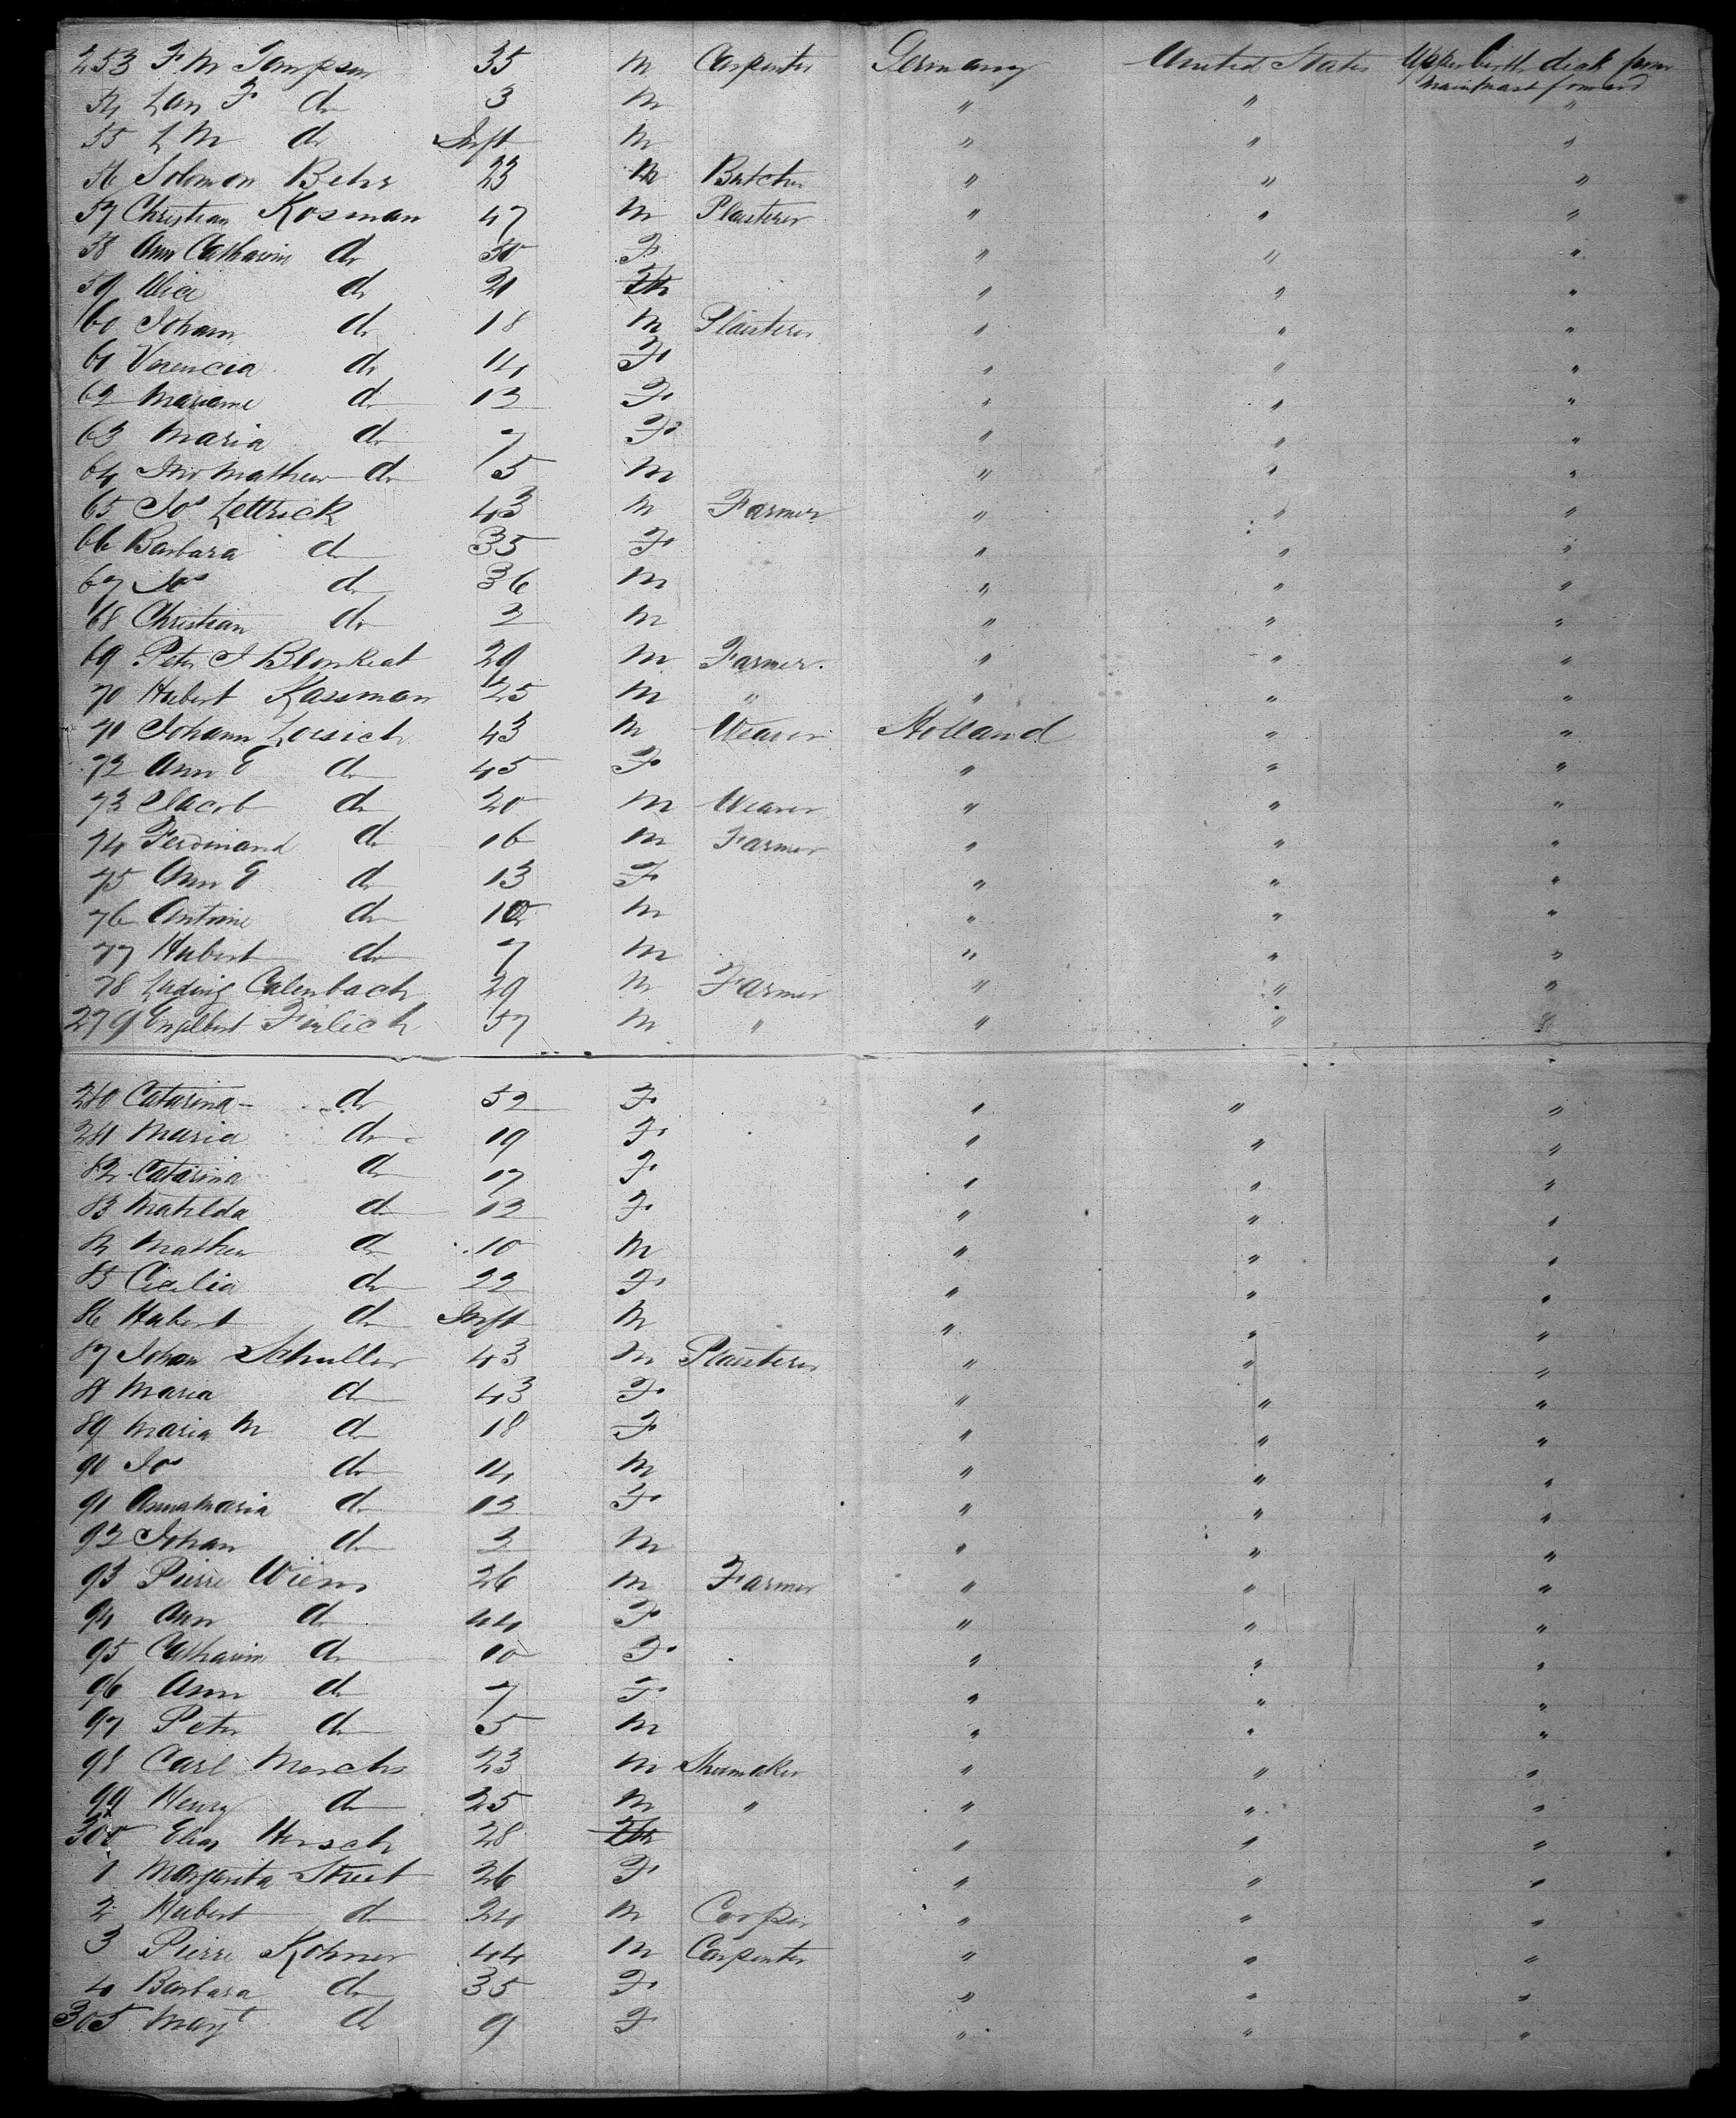 253 F M Tompson 35 M Carpenter Germany United States Upper birth deck from
mainmast forward
54 Lan F do 3 M " " "
55 L M do Inft M " " "
56 Solomon Behr 23 M Butcher " " "
57 Christian Kosman 47 M Plasterer " " "
58 Ann Catharine do 50 F " " "
59 Alice do 21 " " "
60 Johann do 18 M Plasterer " " "
61 Vrencia do 14 F " " "
62 Mariane do 12 F " " "
63 Maria do 7 F " " "
64 Mathew do 5 M " " "
65 Jos Lettrick 43 M Farmer " " "
66 Barbara do 35 F " " "
67 Jos do 36 M " " "
68 Christian do 2 M " " "
69 Peter J Blonkeat 29 M Farmer " " "
70 Hubert Kassman 25 M " " " "
71 Johann Loesich 43 M Weaver Holland " "
72 Ann E do 45 F " " "
73 Jacob do 20 M Weaver " " "
74 Ferdinand do 16 M Farmer " " "
75 Ann E do 13 F " " "
76 Antoine do 10 M " " "
77 Hubert do 7 M " " "
78 Ludwig Calenbach 29 M Farmer " " "
279 Engelbert Firlich 57 M " " " "
280 Catarina do 52 F " " "
281 Maria do 19 F " " "
82 Catarina do 17 F " " "
83 Matilda do 12 F " " "
84 Mathew do 10 M " " "
85 Cicilia do 22 F " " "
86 Hubert do Inft M " " "
87 Johan Schuller 43 M Plasterer " " "
88 Maria do 43 F " " "
89 Maria M do 18 F " " "
90 Jos do 14 M " " "
91 Annamaria do 12 F " " "
92 Johan do 2 M " " "
93 Pierre Wiem 26 M Farmer " " "
94 Ann do 44 F " " "
95 Catharine do 10 F " " "
96 Ann do 7 F " " "
97 Peter do 5 M " " "
98 Carl Morchs 23 M Shumaker " " "
99 Henry do 25 M " " " "
300 Elias Hirsch 28 " " "
1 Margarita Street 26 F " " "
2 Hubert do 24 M Cooper " " "
3 Pierre Kohner 44 M Carpenter " " "
4 Barbara do 35 F " " "
305 Margt do 9 F " " "